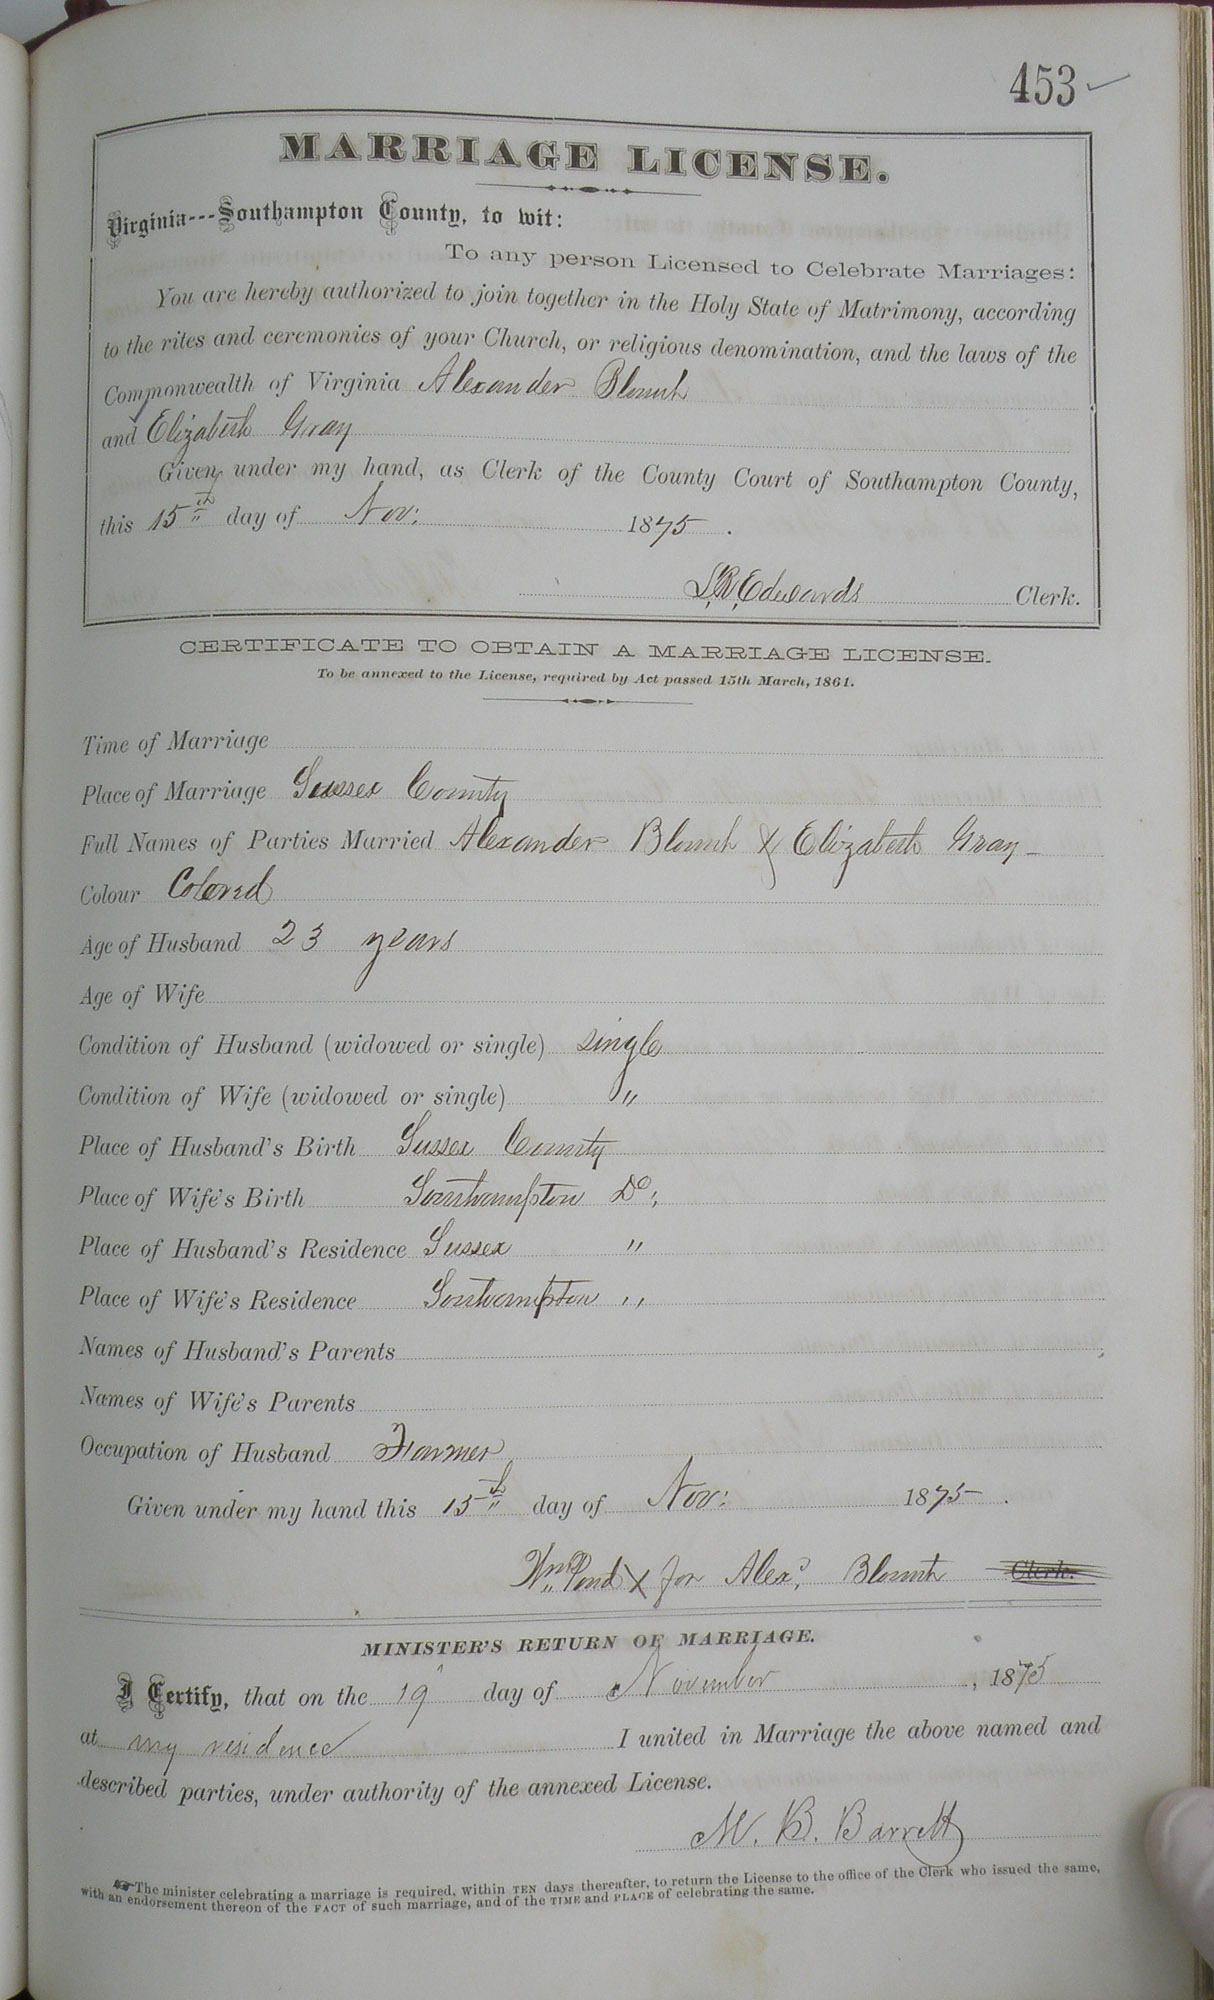 453
MARRIAGE LICENSE.
Virginia---Southampton County, to wit:
To any person Licensed to Celebrate Marriages:
You are hereby authorized to join together in the Holy State of Matrimony, according
to the rites and ceremonies of your Church, or religious denomination, and the laws of the
Commonwealth of Virginia Alexander Blount
and Elizabeth Gray
Given under my hand, as Clerk of the County Court of Southampton County,
this 15th day of Nov: 1875.
L.R. Edwards Clerk.
CERTIFICATE TO OBTAIN A MARRIAGE LICENSE.
To be annexed to the License, required by Act passed 15th March, 1861.
Time of Marriage
Place of Marriage Sussex County
Full Names of Parties Married Alexander Blount & Elizabeth Gray
Colour Colored
Age of Husband 23 years
Age of Wife
Condition of Husband (widowed or single) single
Condition of Wife (widowed or single) "
Place of Husband's Birth Sussex County
Place of Wife's Birth Southampton Do:
Place of Husband's Residence Sussex "
Place of Wife's Residence Southampton "
Names of Husband's Parents
Names of Wife's Parents
Occupation of Husband Farmer
Given under my hand this 15th day of Nov: 1875.
Wm Pond X for Alexr. Blount Clerk.
MINISTER'S RETURN OF MARRIAGE.
I Certify, that on the 19 day of November, 1875
at my residence I united in Marriage the above named and
described parties, under authority of the annexed License.
M. B. Barrett
The minister celebrating a marriage is required, within TEN days thereafter, to return the License to the office of the Clerk who issued the same,
with an endorsement thereon of the FACT of such marriage, and of the TIME and PLACE of celebrating the same.